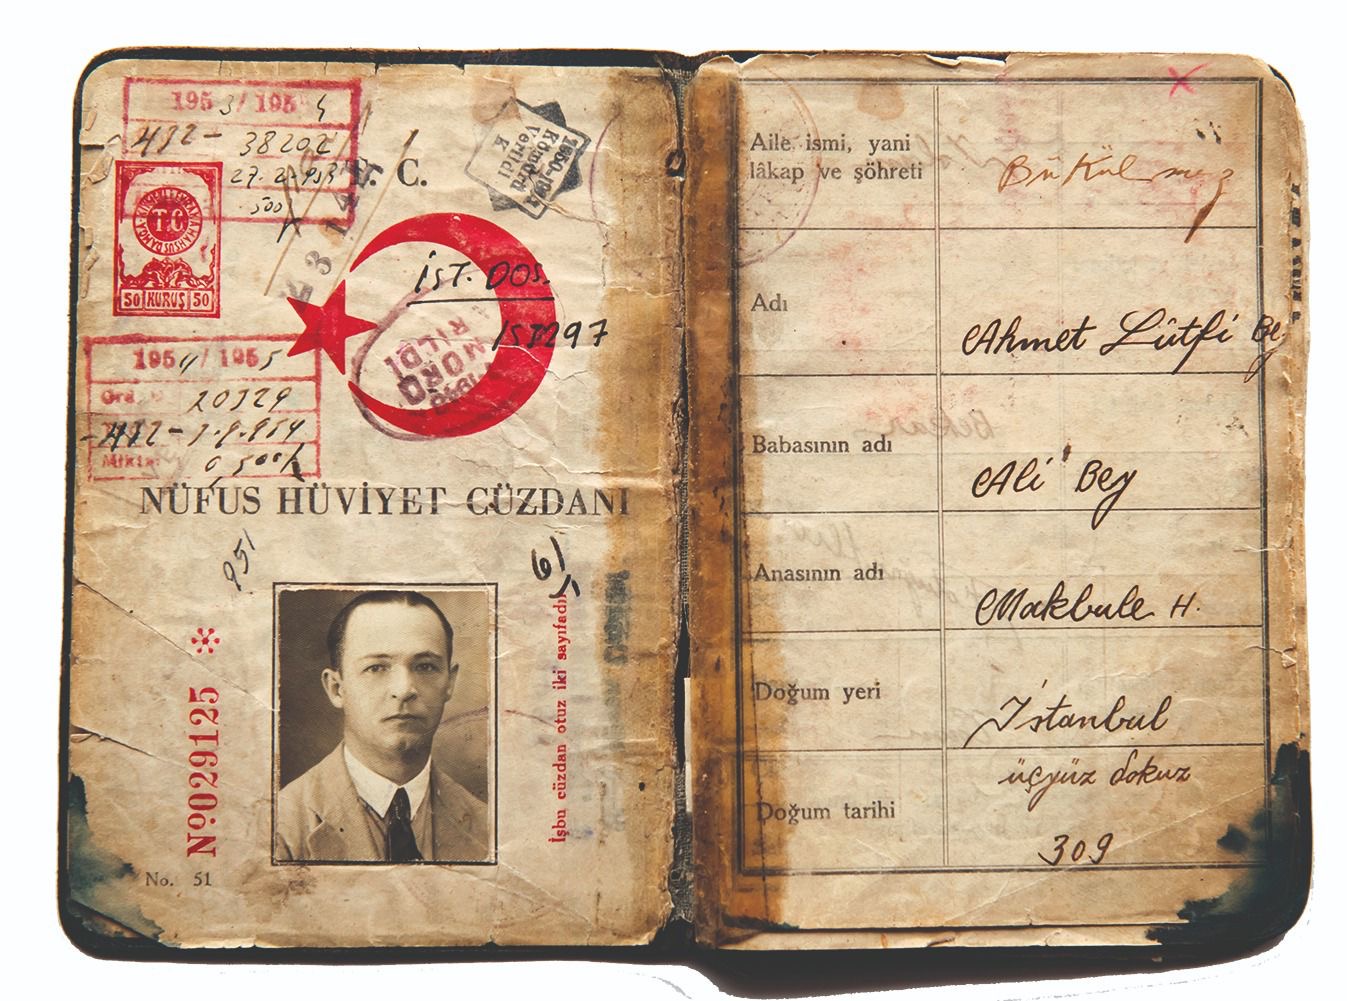 1953/1954
482- 38202
27.2.953
500
T. C.
T.C
50 KURUŞ 50
1950-1951
Kömürü
Verildi
K
İST. DOS.
158297
1954/1955
20329
0,500
NÜFUS HÜVİYET CÜZDANI
951
№029125 *
İşbu cüzdan otuz iki sayıfadı
No. 51
Aile ismi, yani
lâkap ve şöhreti
Bükülmez
Adı
Ahmet Lûtfi Bey
Babasının adı
Ali Bey
Anasının adı
Makbule H.
Doğum yeri
İstanbul
Doğum tarihi
üçyüz dokuz
309